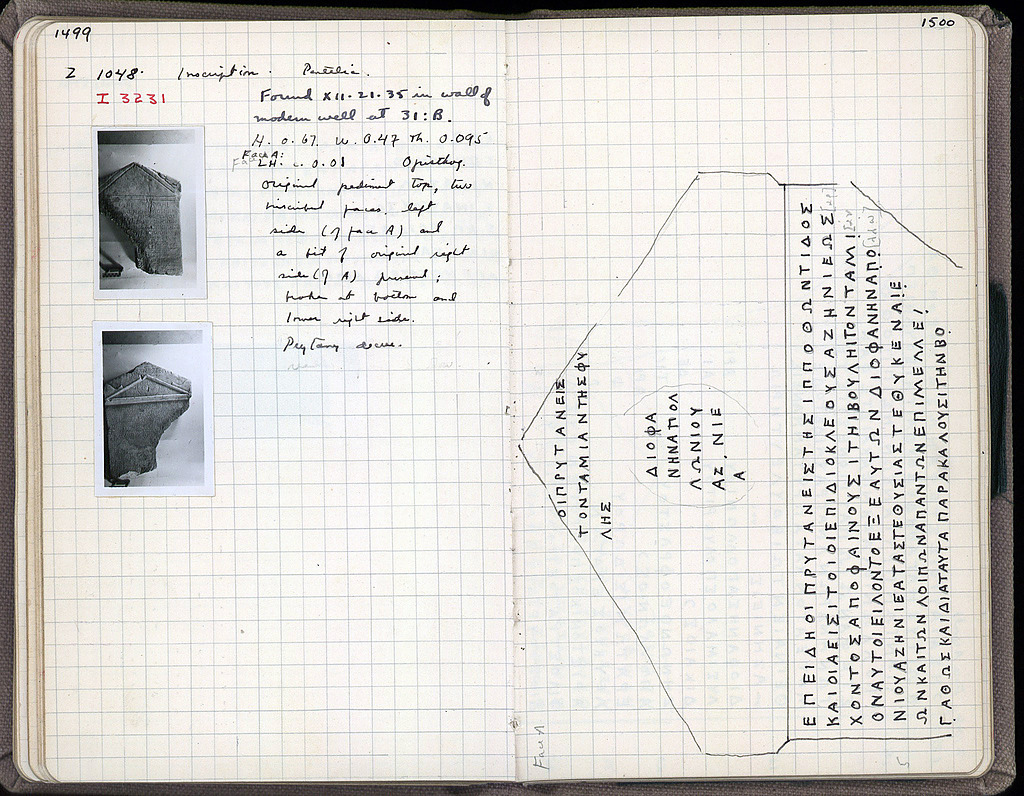 1499
Z 1048. Inscription. Pentelic.
I 3231
Found XII-21-35 in wall of
modern well at 31:B.
H. 0.67. W. 0.47 Th. 0.095
Face A:
LH. c. 0.01 Opisthog.
Original pediment top, two
inscribed faces. left
side (of face A) and
a bit of original right
side (of A) present;
broken at bottom and
lower right side.
Prytany decree.
1500
ΟΙΠΡΥΤΑΝΕΙΣ
ΤΟΝΤΑΜΙΑΝΤΗΣΦΥ
ΛΗΣ
ΔΙΟΦΑ
ΝΗΝΑΠΟΛ
ΛΩΝΙΟΥ
ΑΖ.ΝΙΕ
Α
ΕΠΕΙΔΗΟΙΠΡΥΤΑΝΕΙΣΤΗΣΙΠΠΟΘΩΝΤΙΔΟΣ
ΚΑΙΟΙΑΕΙΣΙΤΟΙΟΙΕΠΙΔΙΟΚΛΕΟΥΣΑΖΗΝΙΕΩΣ
ΧΟΝΤΟΣΑΠΟΦΑΙΝΟΥΣΙΤΗΙΒΟΥΛΗΙΤΟΝΤΑΜΙ
ΟΝΑΥΤΟΙΕΙΛΟΝΤΟΕΞΕΑΥΤΩΝΔΙΟΦΑΝΗΝΑΠΟ
ΝΙΟΥΑΖΗΝΙΕΑΤΑΣΤΕΘΥΣΙΑΣΤΕΘΥΚΕΝΑΙΕ
ΩΝΚΑΙΤΩΝΛΟΙΠΩΝΑΠΑΝΤΩΝΕΠΙΜΕΛΛΕ
ΓΑΘΩΣΚΑΙΔΙΑΤΑΥΤΑΠΑΡΑΚΑΛΟΥΣΙΤΗΝΒΟ
Face A
5